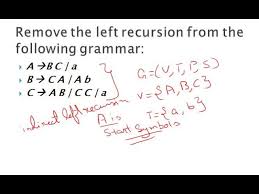 Remove the left recursion from the
following grammar:
A→BC/a
B→CA/Ab
C→AB/CC/a
indirect left recursion
G=(V,T,P,S)
V={A,B,C}
T={a,b}
A is
start symbols